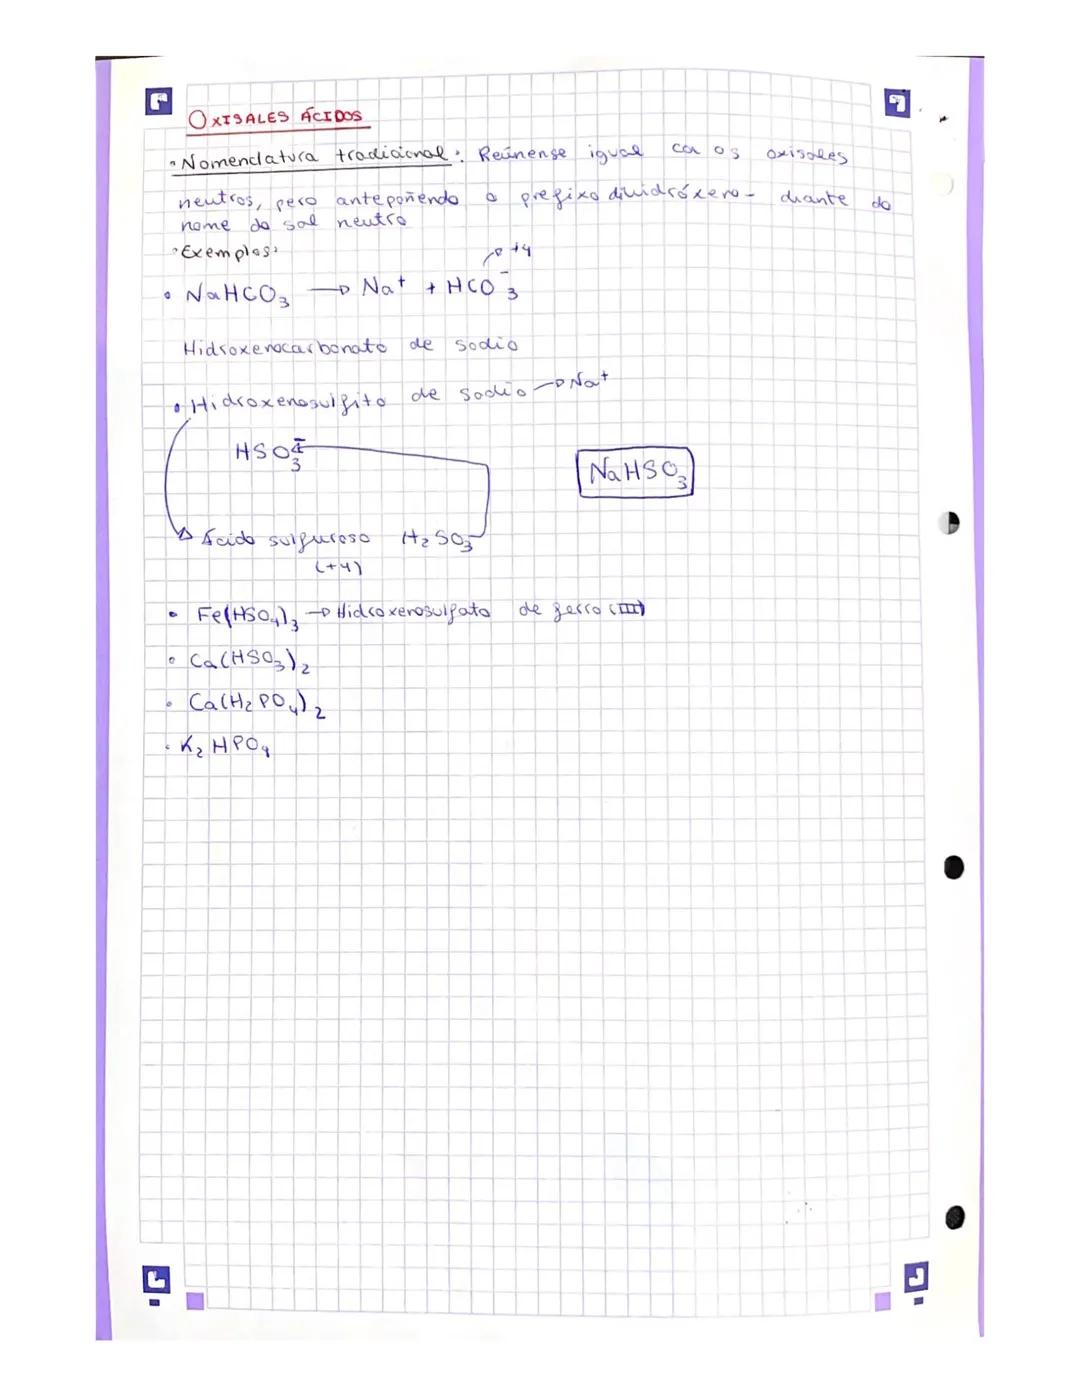 OXISALES ÁCIDOS
• Nomenclatura tradicional: Reúnense igual ca os oxisales
neutros, pero antepoñendo o prefixo dihidróxeno- diante do
nome do sal neutro
• Exemplos:
+4
• NaHCO₃ → Na⁺ + HCO₃⁻
Hidroxenocarbonato de sodio
• Hidroxenosulfito de sodio → Na⁺
HSO₃⁻
NaHSO₃
Ácido sulfuroso H₂SO₃
(+4)
• Fe(HSO₄)₃ → Hidroxenosulfato de ferro (III)
• Ca(HSO₃)₂
• Ca(H₂PO₄)₂
• K₂HPO₄